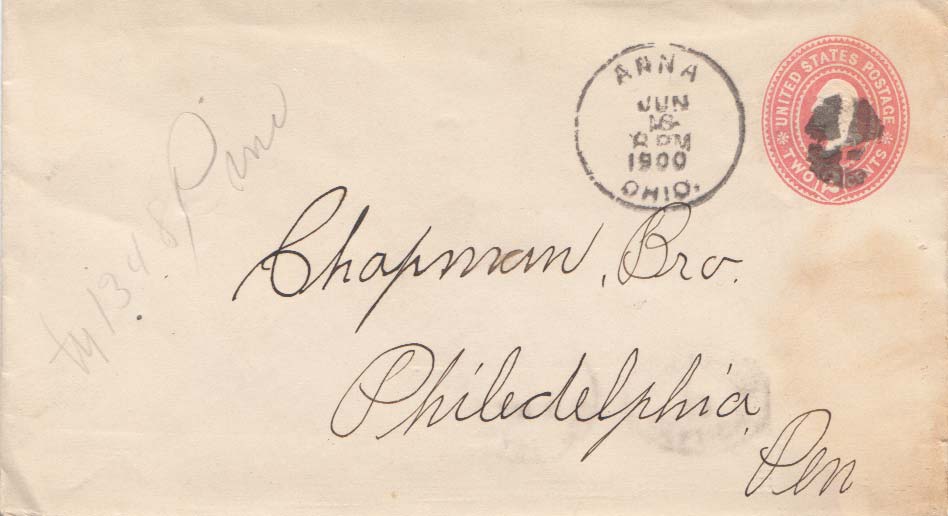 ANNA
JUN
8 PM
1900
OHIO.
UNITED STATES POSTAGE
TWO CENTS
try 1348 Pine
Chapman, Bro.
Philedelphia
Pen